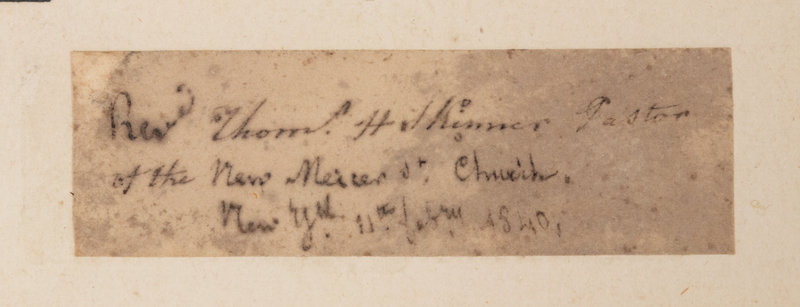 Revd Thoms. H Skinner Pastor
of the New Mercer St. Church.
New Yrk 11th febry 1840,